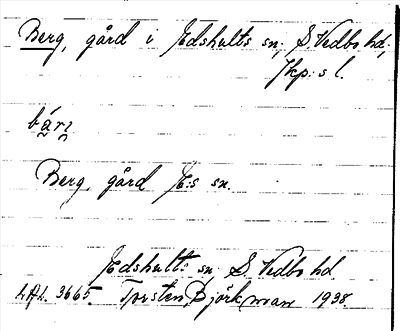 Berg, gård i Edshults sn, S. Vedbo hd,
Jkp:s l.
Berg, gård E:s sn.
Edshults sn S. Vedbo hd.
LAL. 3665. Torsten Björkman 1938.